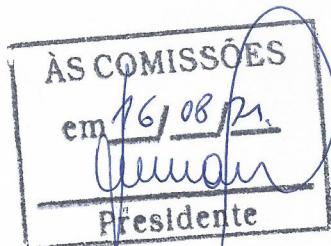 ÀS COMISSÕES
em 16/08/21.
Presidente